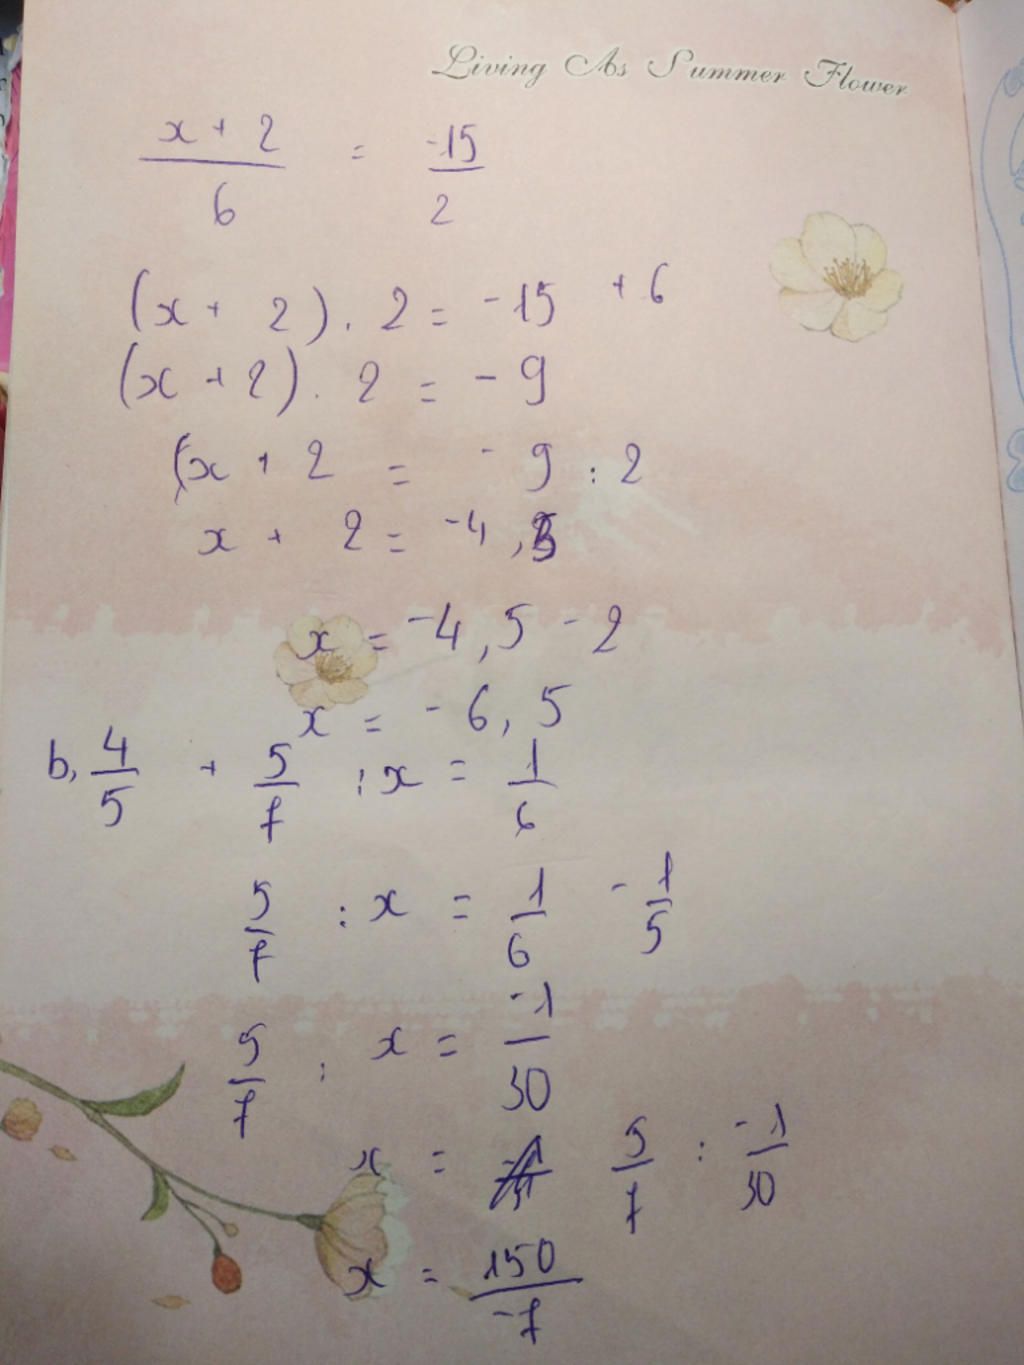 Living As Summer Flower
x + 2 / 6 = -15 / 2
(x + 2) . 2 = -15 + 6
(x + 2) . 2 = - 9
(x + 2 = - 9 : 2
x + 2 = -4 , 5
x = -4 , 5 - 2
x = - 6 , 5
b, 4/5 + 5/7 : x = 1/6
5/7 : x = 1/6 - 1/5
5/7 : x = -1/30
x = 5/7 : -1/30
x = 150/-7